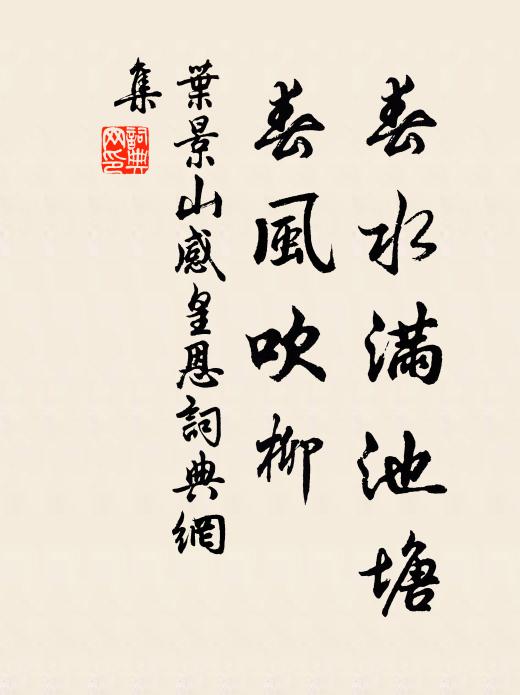 春水滿池塘
春風吹柳
葉景山感皇恩詞典網
集
詞典網印